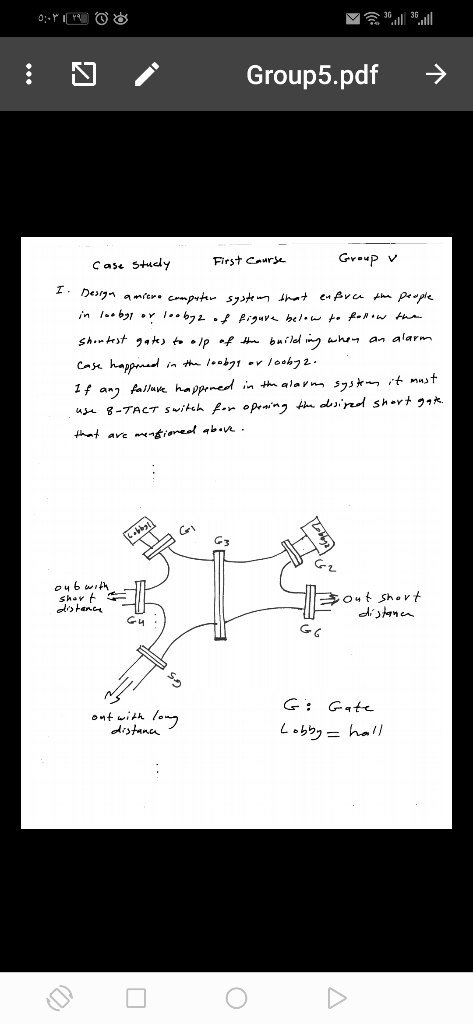 ٥:٠٣ ٢٩ 3G 3G
Group5.pdf
Case study First Course Group V
I. Design a micro computer system that enforce the people
in looby1 or looby2 of figure below to follow the
shortest gates to o/p of the building when an alarm
case happened in the looby1 or looby2.
If any failure happened in the alarm system it must
use 8-TACT switch for opening the desired short gate
that are mentioned above.
Lobby1 G1 G3 Lobby2
G2
out with
short
distance
G4
out short
distance
G6
G5
out with long
distance
G: Gate
Lobby = hall